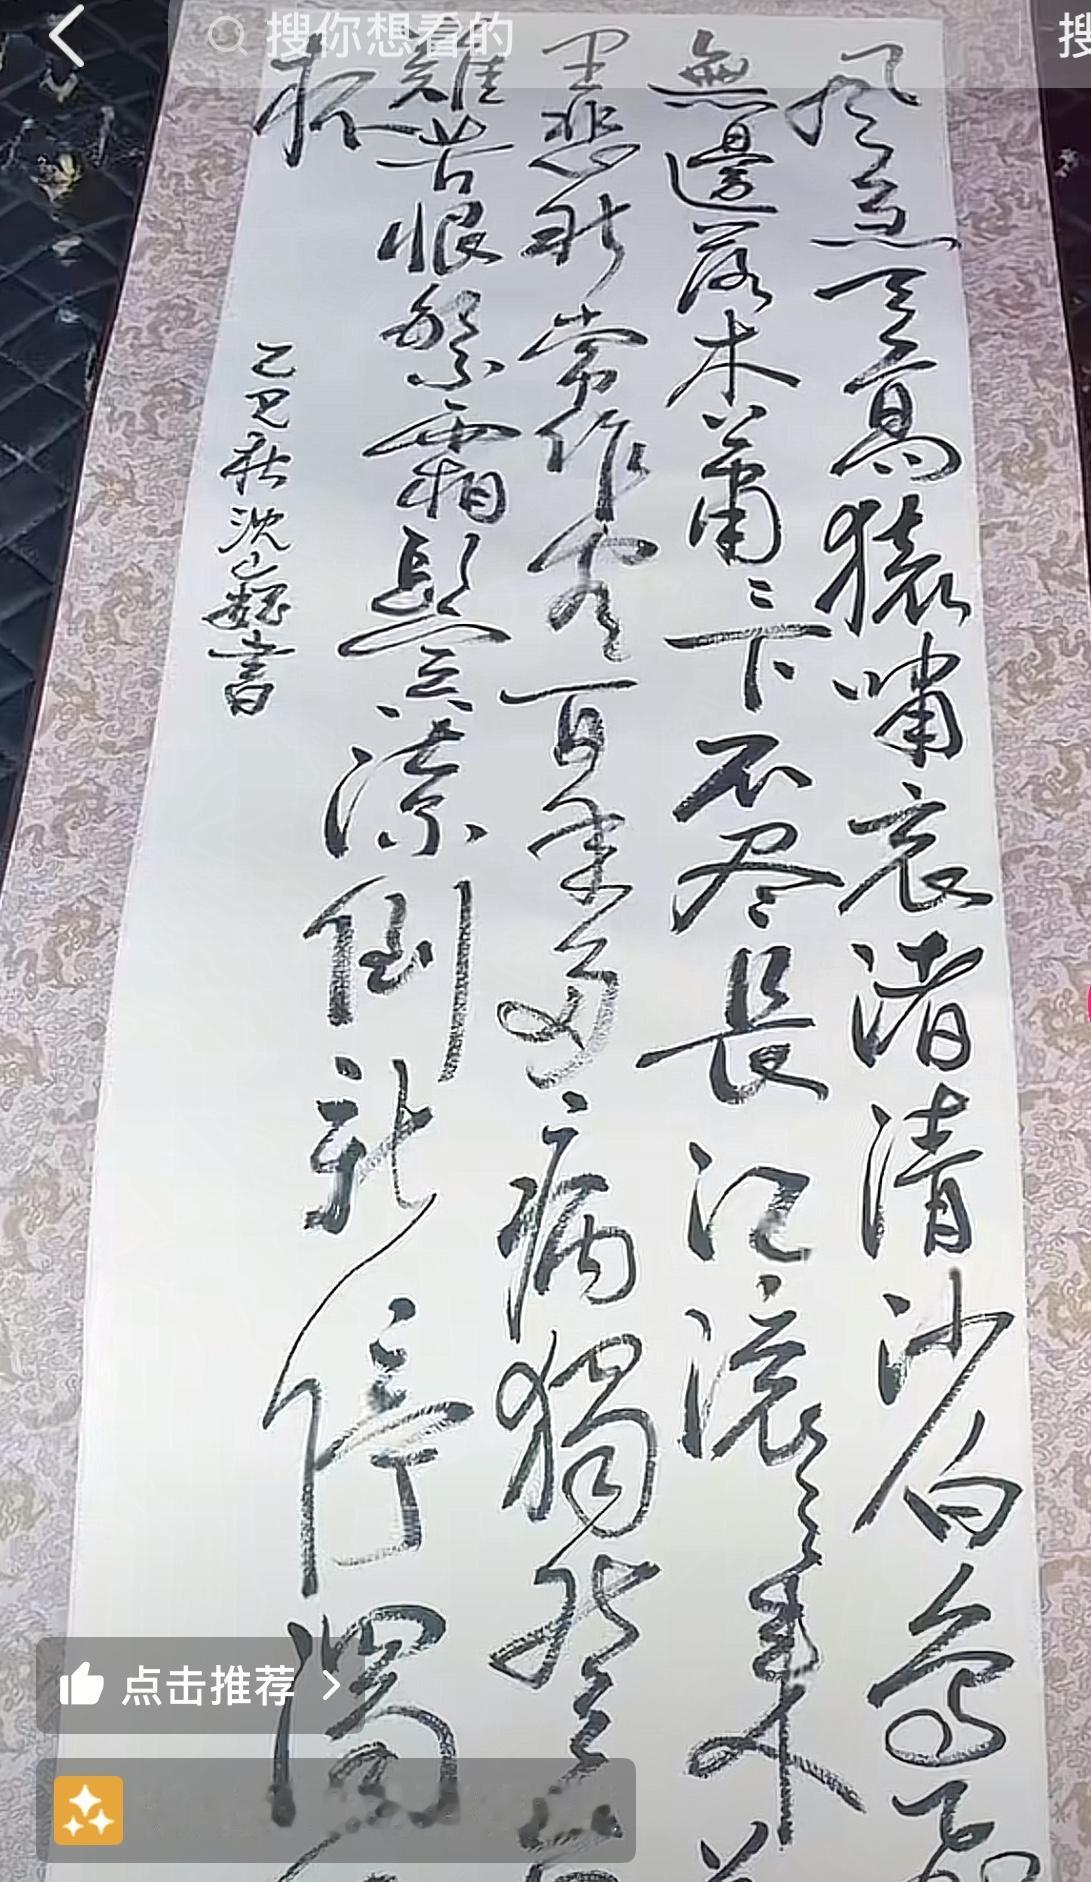 搜你想看的
搜
风急天高猿啸哀渚清沙白鸟飛
無邊落木萧〻下不尽長江滚〻来萬
里悲秋常作客百年多病獨登臺
難苦恨繁霜鬓潦倒新停濁
杯
乙巳秋沈山书
点击推荐